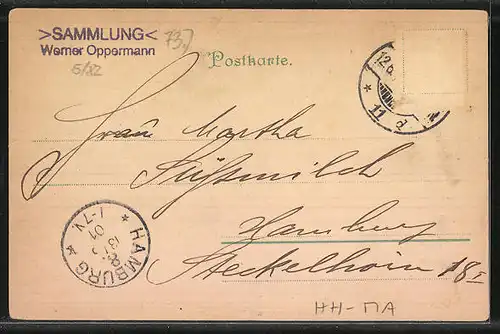 >SAMMLUNG<
Werner Oppermann
73,
5/82
Postkarte.
12.6
11 a
Frau Martha
Süssmilch
Hamburg
Steckelhörn 18 I
* HAMBURG *
1-7V
01
HH-MA